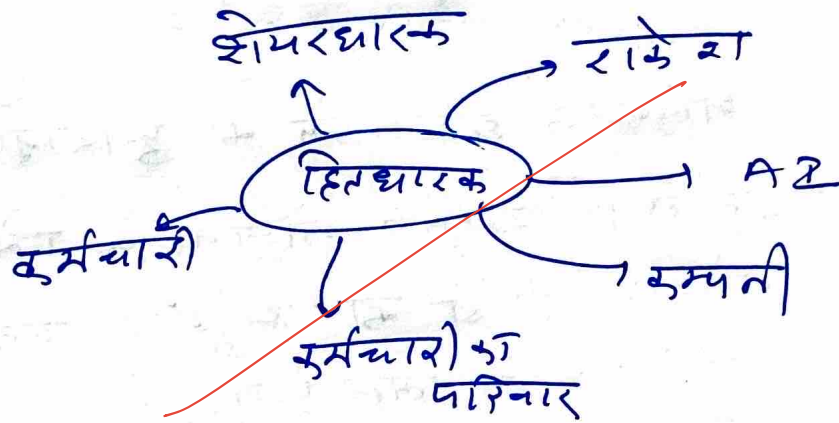 शेयरधारक
राकेश
हितधारक
AI
कर्मचारी
कम्पनी
कर्मचारी का
परिवार